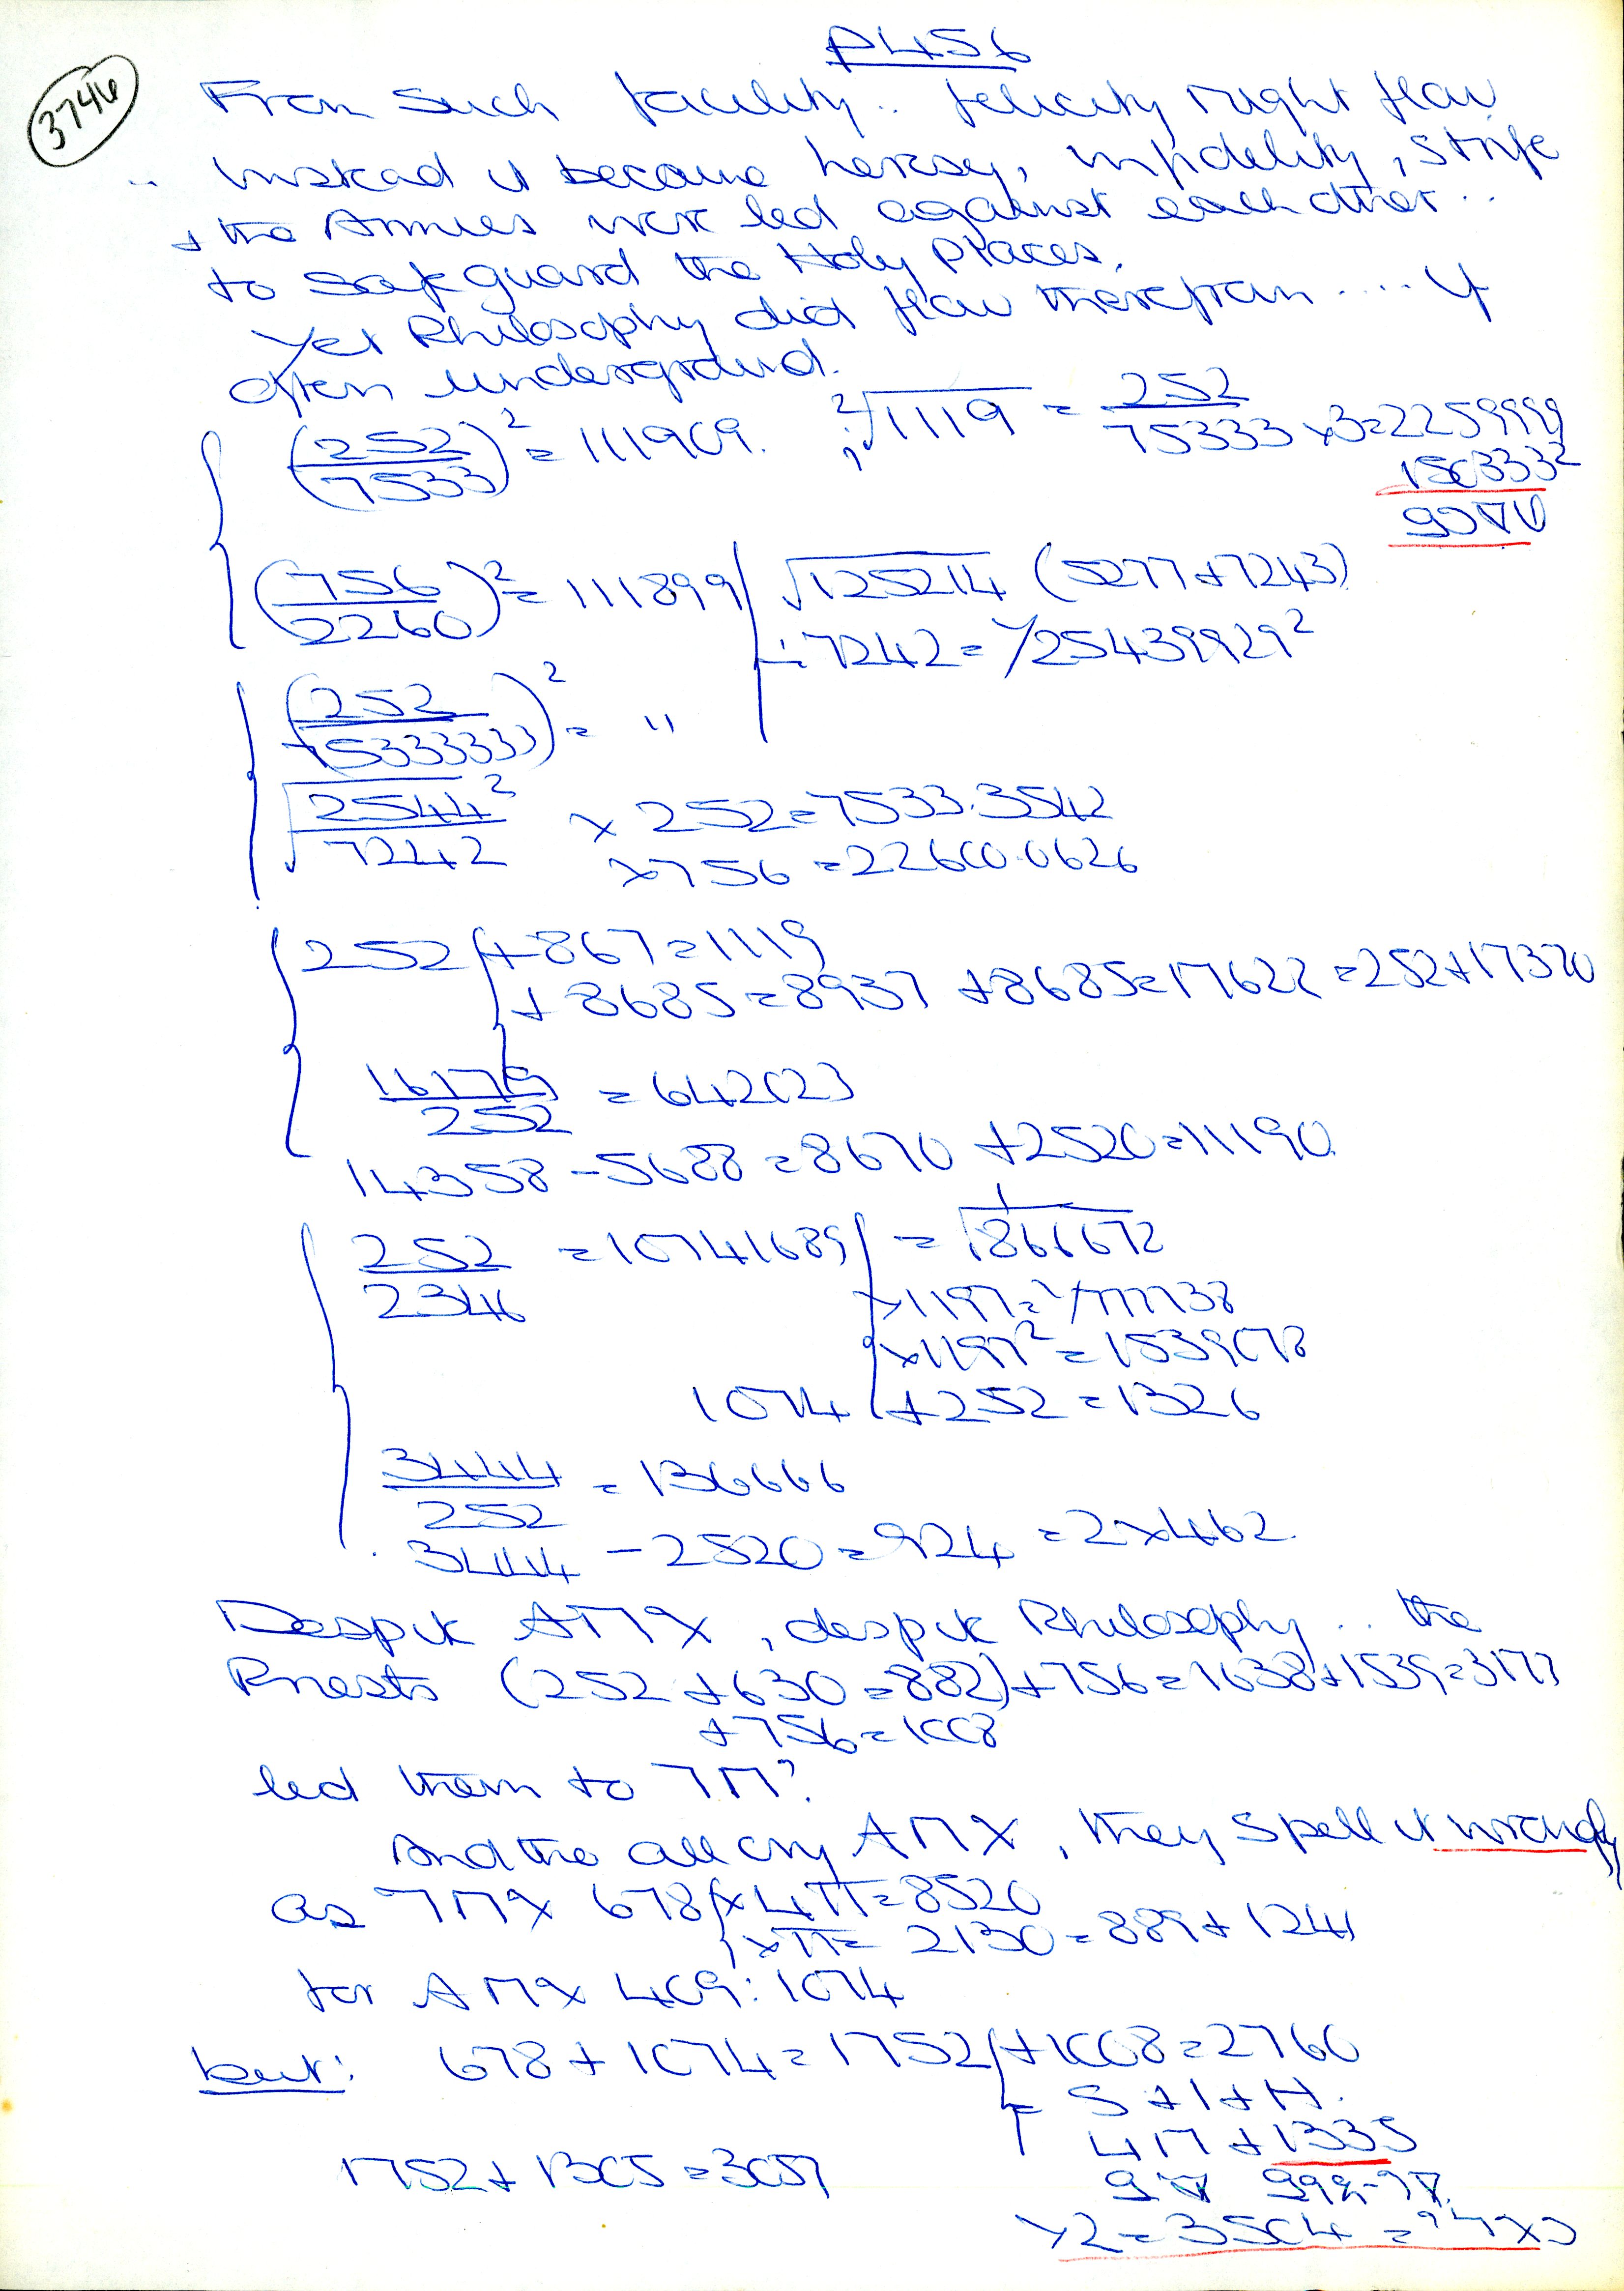 P456
3746
From such facility .. felicity might flow
.. instead it became heresy, infidelity, strife
+ the Armies were led against each other ..
to safeguard the Holy Places.
Yet Philosophy did flow therefrom .... if
often underground.
(252/7533)² = 111909. ²√1119 = 252/75333 x3=2259999
1503333²
(756/2260)² = 111899 √125214 (5277+7243)
∴ 7242 = 1/25439929²
(252/75333333)² = "
√2544²/7242 x 252=7533.3542
x756 =22600.0626
252 +867=1119
+8685=8937 +8685=17622 =252+17370
16179/252 = 642023
14358-5688=8670 +2520=11190
252/2346 =10741689 =
x1197=
x1197²=1539078
1074 +252=1326
3444/252 = 136666
3444-2520=924 =2x462
Despite , despite Philosophy .. the
Priests (252+630=882)+756=1638+1539=3177
+756=1008
led them to ?
And the all cry , they spell it wrongly
as 678 x4π=8520
xπ= 2130=889+1241
for 409:1074
but: 678+1074=1752 +1008=2760
= S+I+H.
417+1335
1752+1305=3057
x2=3504 =